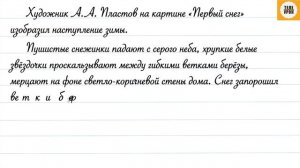 Художник А.А. Пластов на картине «Первый снег»
изобразил наступление зимы.
Пушистые снежинки падают с серого неба, хрупкие белые
звёздочки проскальзывают между гибкими ветками берёзы,
мерцают на фоне светло-коричневой стены дома. Снег запорошил
ве т к и б ер